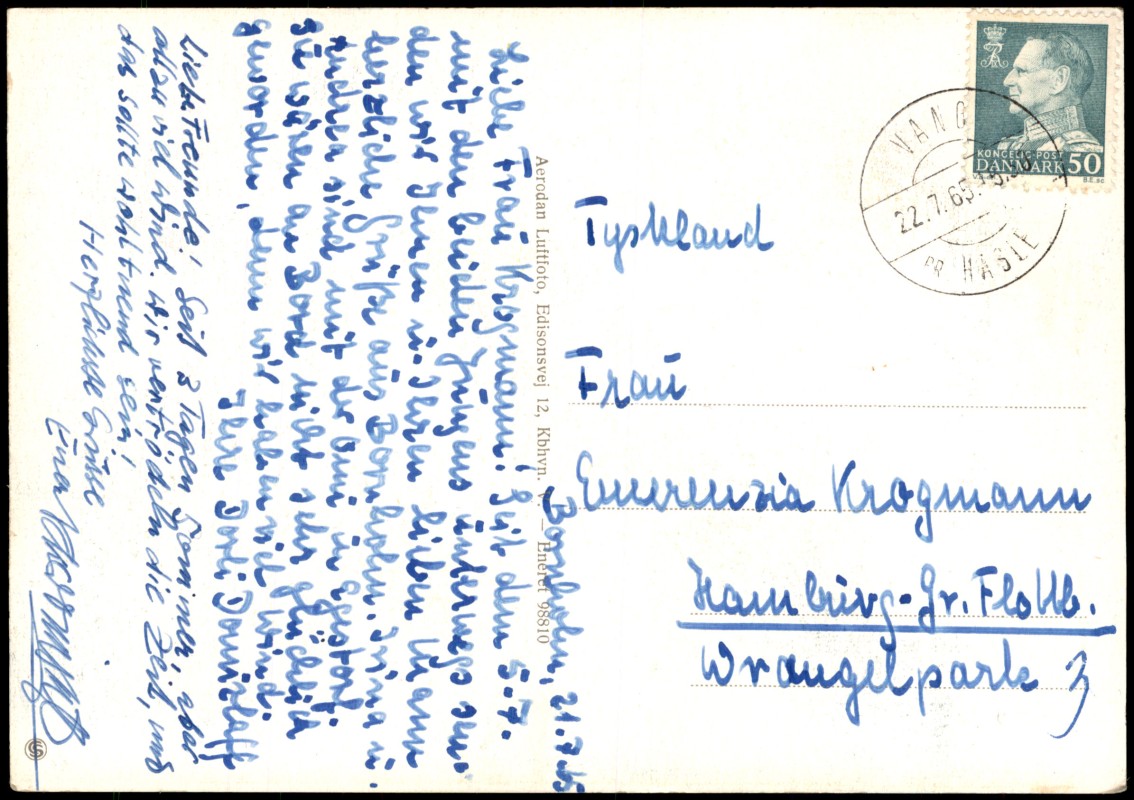 Bornholm, 21.7.65
Liebe Frau Krogmann! Seit dem 5.7.
mit den beiden Jungens unterwegs sen-
den wir Ihnen u. Ihrem lieben Mann
herzliche Grüße aus Bornholm. Irina u.
Andrea sind mit der Omi in Egestorf.
Sie wären an Bord nicht sehr glücklich
geworden, denn wir haben viel Wind.
Ihre Dorli
Liebe Freunde! Seit 3 Tagen Sommer, aber
allzu viel Wind. Wir vertrödeln die Zeit, und
das sollte wohl sein!
Herzlichste Grüsse
Aerodan Luftfoto, Edisonsvej 12, Kbhvn. V. — Eneret 98810
KONGELIG·POST
DANMARK 50
B.E. sc
VANG
22.7.65
PR HASLE
Tyskland
Frau
Emerenzia Krogmann
Hamburg-Gr. Flottb.
Wrangelpark 3